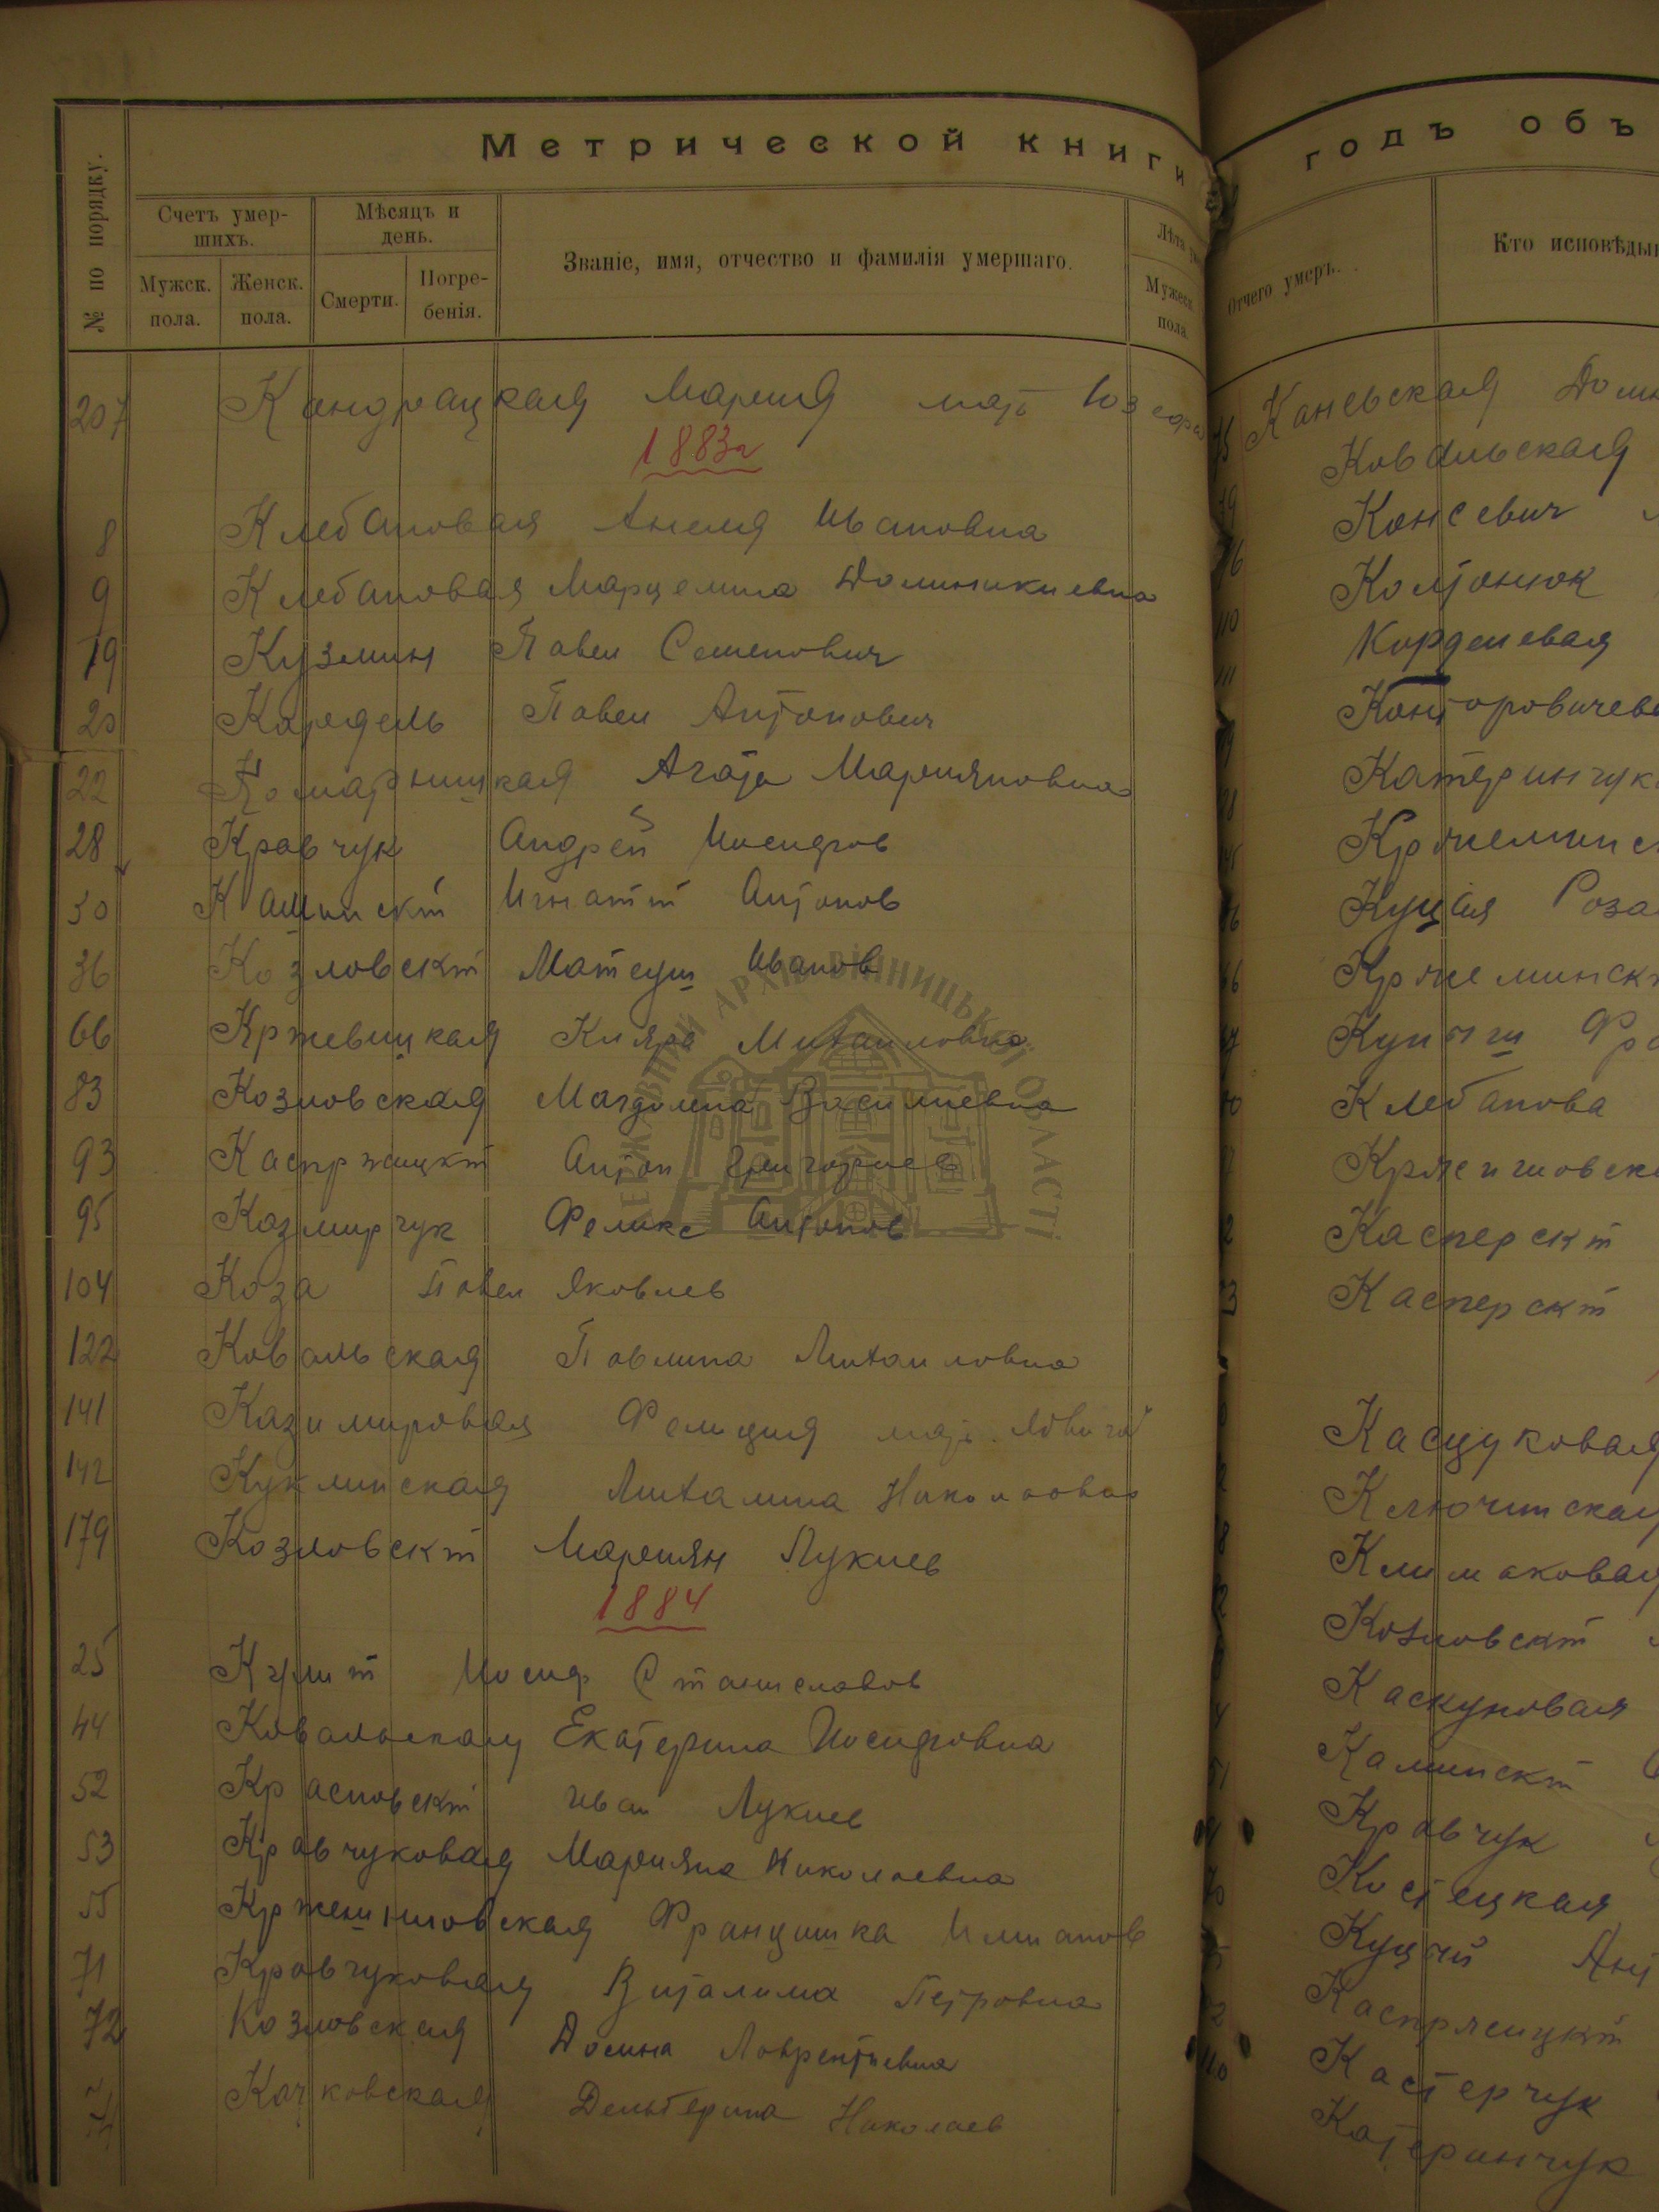 Метрической книги
№ по порядку.
Счетъ умер-
шихъ.
Мужск.
пола.
Женск.
пола.
Мѣсяцъ и
день.
Смерти.
Погре-
бенія.
Званіе, имя, отчество и фамилія умершаго.
Лѣта
Мужеск.
пола
207 Кондрацкая Мария мат Юзефа
1883г
8 Клебановая Анеля Ивановна
9 Клебановая Марцелина Доминикиевна
19 Кузмин Павел Семенович
20 Кардель Павел Антонович
22 Комарницкая Агата Марияновна
28 Кравчук Андрей Иосифов
30 Камински Игнатий Антонов
36 Козловскій Матеуш Иванов
66 Кржевицкая Кляра Михаиловна
83 Козловская Магдолена Василиевна
93 Каспржицкій Антон Григориев
95 Казмирчук Феликс Антонов
104 Коза Павел Яковлев
122 Ковальская Павлина Михаиловна
141 Казимировая Фелиция мат.
142 Куклинская Михалина Николаевна
179 Козловскій Мариян Лукиев
1884
25 Иосиф Станиславов
44 Ковальская Екатерина Иосифовна
52 Красновскій Иван Лукиев
53 Кравчуковая Марияна Николаевна
55 Кржешиновская Францишка
71 Кравчуковая Виталина Петровна
72 Козловская Досина Лаврентиевна
Качковская Николаев
ДЕРЖАВНИЙ АРХІВ ВІННИЦЬКОЇ ОБЛАСТІ
годъ объ
Отчего умеръ.
Кто исповѣды
Каневская
Ковальская
Консевич
Колтонюк
Корделевая
Канторовичев
Катеринчук
Кржеминс
Куцая Роза
Кржеминск
Купыш
Клебанова
Кржешновск
Касперскій
Касперскій
Касцуковая
Ключинская
Климаковая
Козловскій
Каскуновая
Каминскій
Кравчук
Костецкая
Куцый Ант
Каспржицкій
Кастерчук
Катеринчук